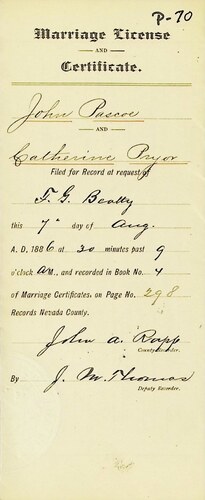 P-70
Marriage License
AND
Certificate.
John Pascoe
AND
Catherine Pryor
Filed for Record at request of
T. G. Beatty
this 7th day of Aug.
A. D. 1886 at 30 minutes past 9
o'clock AM, and recorded in Book No. 4
of Marriage Certificates, on Page No. 298
Records Nevada County.
John A. Rapp
County Recorder.
By J. M. Thomas
Deputy Recorder.